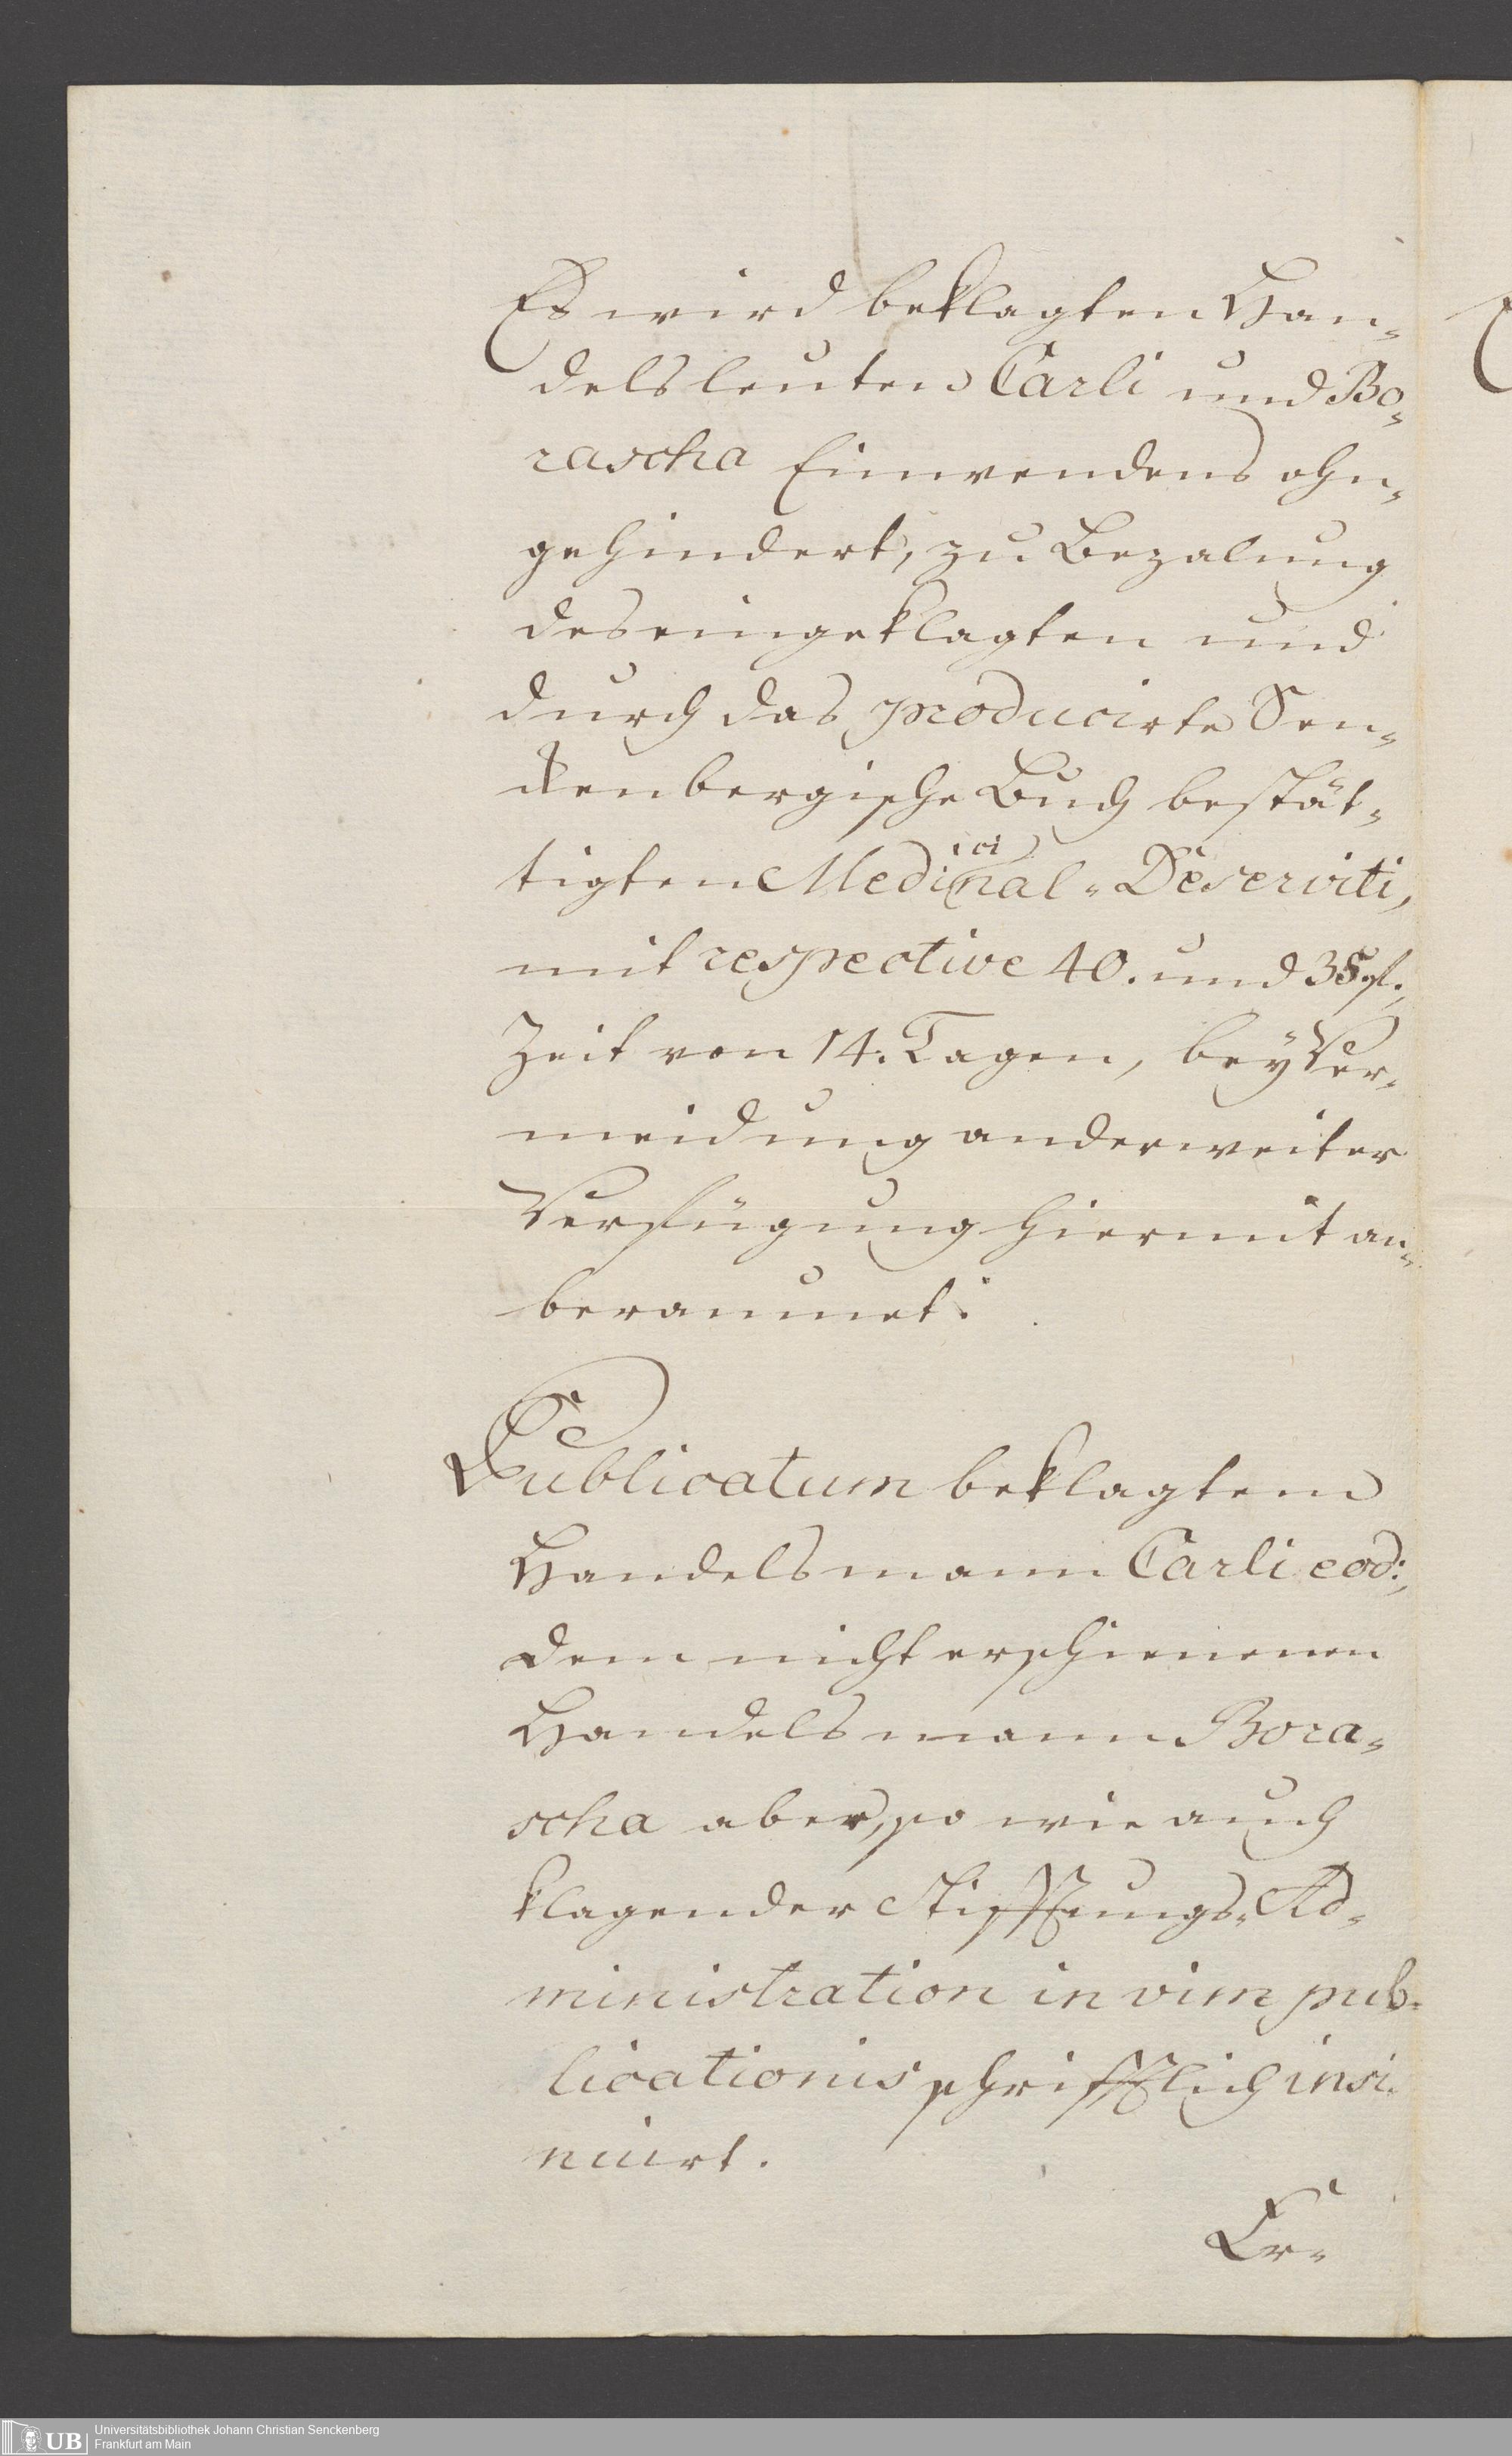 Es wird beklagten Han-
delsleuten Carli und Bo-
rascha Einwendens ohn-
gehindert, zu Bezalung
des eingeklagten und
durch das producirte Sen-
ckenbergische Buch bestät-
tigten Medicinal-Deserviti,
mit respective 40. und fl.,
Zeit von 14. Tagen, bey Ver-
meidung anderweiter
Verfügung hiermit an-
beraumet.
Publicatum beklagtem
Handelsmann Carli eod:,
dem nicht erschienenen
Handelsmann Bora-
scha aber, so wie auch
klagender Stifftungs-Ad-
ministration in vim pub-
licationis schrifftlich insi-
nuirt.
Er-
UB Universitätsbibliothek Johann Christian Senckenberg
Frankfurt am Main